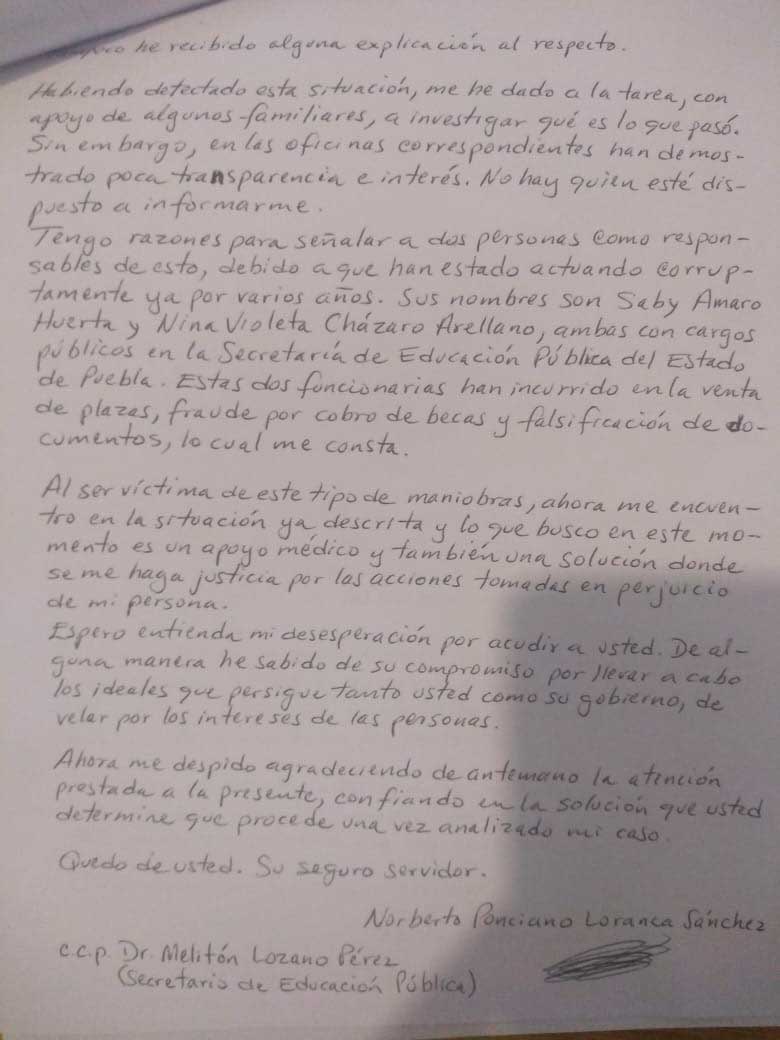 he recibido alguna explicación al respecto.
Habiendo detectado esta situación, me he dado a la tarea, con
apoyo de algunos familiares, a investigar qué es lo que pasó.
Sin embargo, en las oficinas correspondientes han demos-
trado poca transparencia e interés. No hay quien esté dis-
puesto a informarme.
Tengo razones para señalar a dos personas como respon-
sables de esto, debido a que han estado actuando corrup-
tamente ya por varios años. Sus nombres son Saby Amaro
Huerta y Nina Violeta Cházaro Arellano, ambas con cargos
públicos en la Secretaría de Educación Pública del Estado
de Puebla. Estas dos funcionarias han incurrido en la venta
de plazas, fraude por cobro de becas y falsificación de do-
cumentos, lo cual me consta.
Al ser víctima de este tipo de maniobras, ahora me encuen-
tro en la situación ya descrita y lo que busco en este mo-
mento es un apoyo médico y también una solución donde
se me haga justicia por las acciones tomadas en perjuicio
de mi persona.
Espero entienda mi desesperación por acudir a usted. De al-
guna manera he sabido de su compromiso por llevar a cabo
los ideales que persigue tanto usted como su gobierno, de
velar por los intereses de las personas.
Ahora me despido agradeciendo de antemano la atención
prestada a la presente, confiando en la solución que usted
determine que procede una vez analizado mi caso.
Quedo de usted. Su seguro servidor.
Norberto Ponciano Loranca Sánchez
c.c.p. Dr. Melitón Lozano Pérez
(Secretario de Educación Pública)